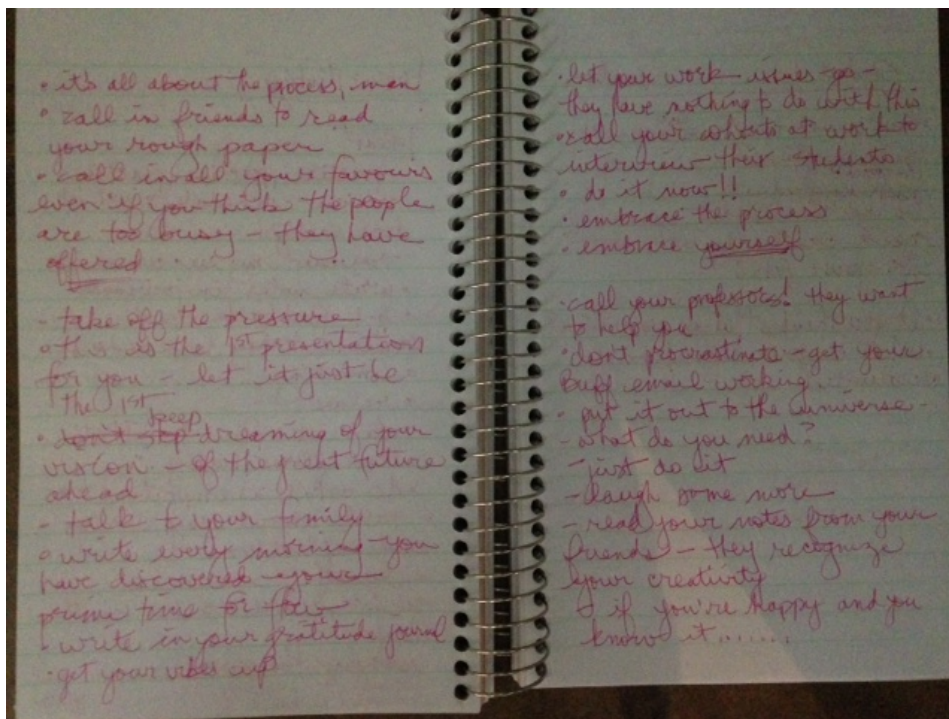 • it's all about the process, man
• call in friends to read
your rough paper
• call in all your favours
even if you think the people
are too busy – they have
offered
- take off the pressure
• this is the 1st presentation
for you – let it just be
the 1st
• don't stop keep dreaming of your
vision – of the great future
ahead
- talk to your family
• write every morning – you
have discovered your
prime time for flow
- write in your gratitude journal
• get your vibes up
• let your work issues go –
they have nothing to do with this
• call your cohorts at work to
interview their students
• do it now!!
• embrace the process
• embrace yourself
• call your professors! they want
to help you
• don't procrastinate – get your
Buff email working
• put it out to the universe –
- what do you need?
- just do it
- laugh some more
- read your notes from your
friends – they recognize
your creativity
- if you're happy and you
know it......